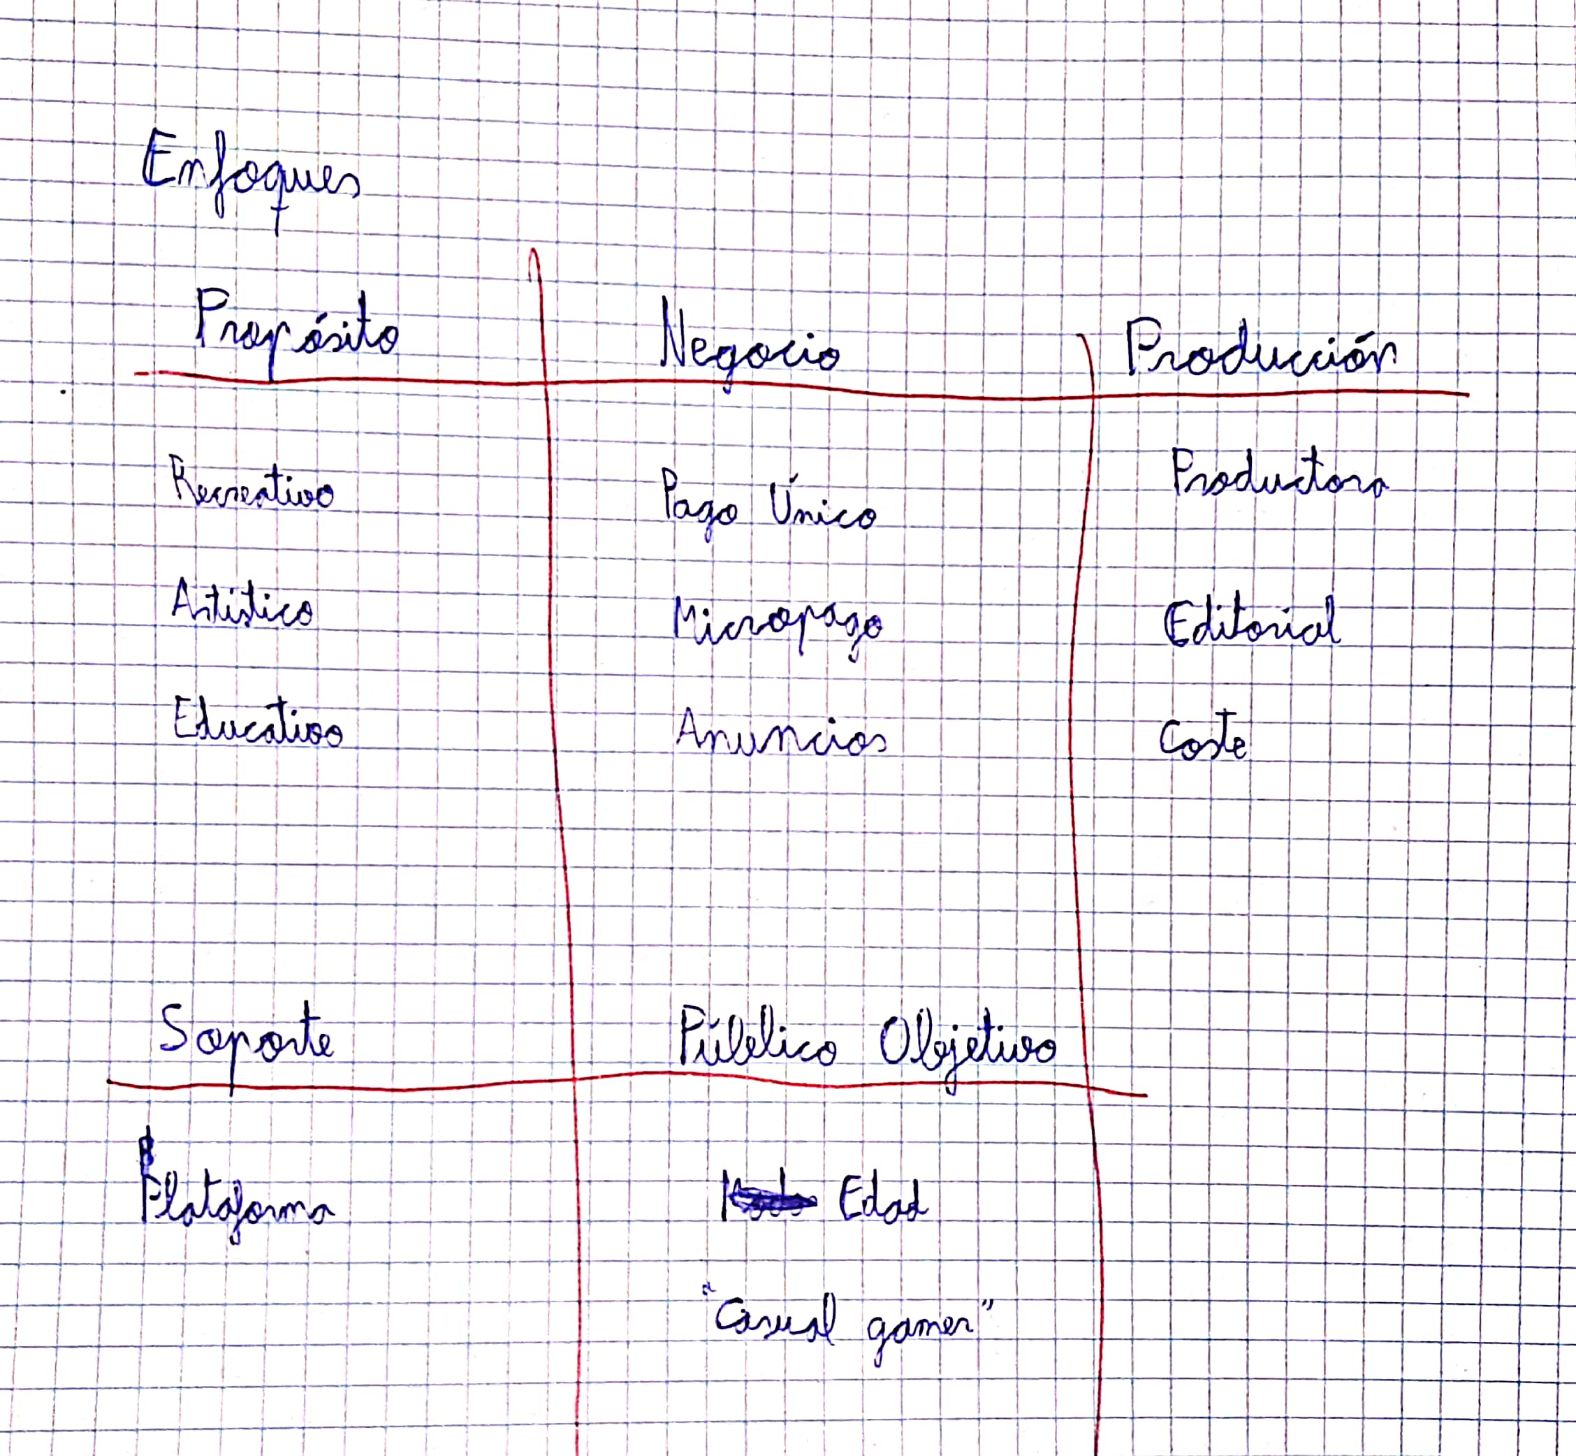 Enfoques
Propósito Negocio Producción
Recreativo Pago Único Productora
Artístico Micropago Editorial
Educativo Anuncios Coste
Soporte Público Objetivo
Plataforma Edad
"Casual gamer"